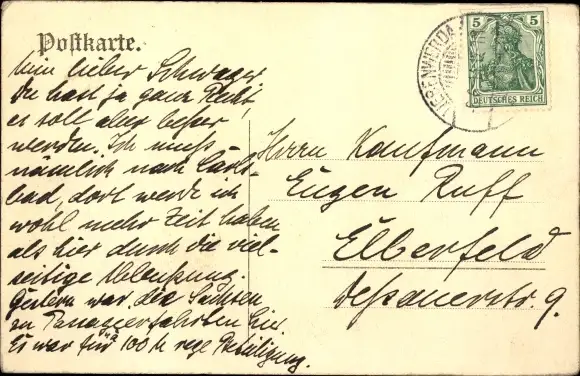 Postkarte.
Mein lieber Schwager
Du hast ja ganz Recht,
es soll alles besser
werden. Ich muss
nämlich nach Carls-
bad, dort werde ich
wohl mehr Zeit haben
als hier durch die viel-
seitige
Gestern war
zu
Es war für 100 M rege Beteiligung.
5 5
DEUTSCHES REICH
LIEBENWERDA
Herrn Kaufmann
Eugen Ruff
Elberfeld
Dessauerstr. 9.